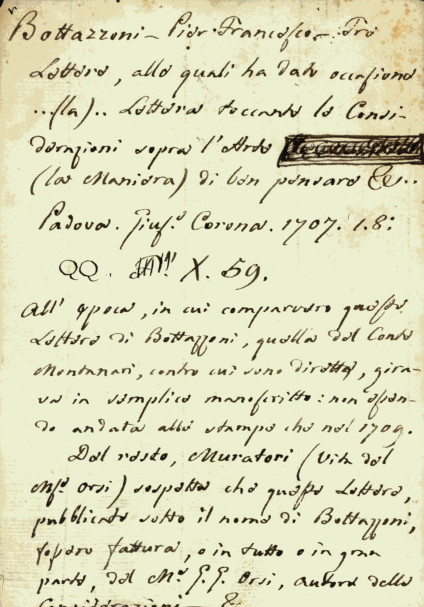 Bottazzoni – Pier-Francesco – Tre
Lettere, alle quali ha dato occasione
..(la).. Lettera toccante le Consi-
derazioni sopra l'Arte
(la Maniera) di ben pensare &c..
Padova. Gius.e Corona. 1707. 1.8:
QQ. X. 59.
All' epoca, in cui comparvero queste
Lettere di Bottazzoni, quella del Conte
Montanari, contro cui sono dirette, gira-
va in semplice manoscritto: non essen-
do andata alle stampe che nel 1709.
Del resto, Muratori (Vita del
M.se Orsi) sospetta che queste Lettere,
pubblicate sotto il nome di Bottazzoni,
fossero fattura, o in tutto o in gran
parte, del M.se G.G. Orsi, autore delle
Considerazioni – &c